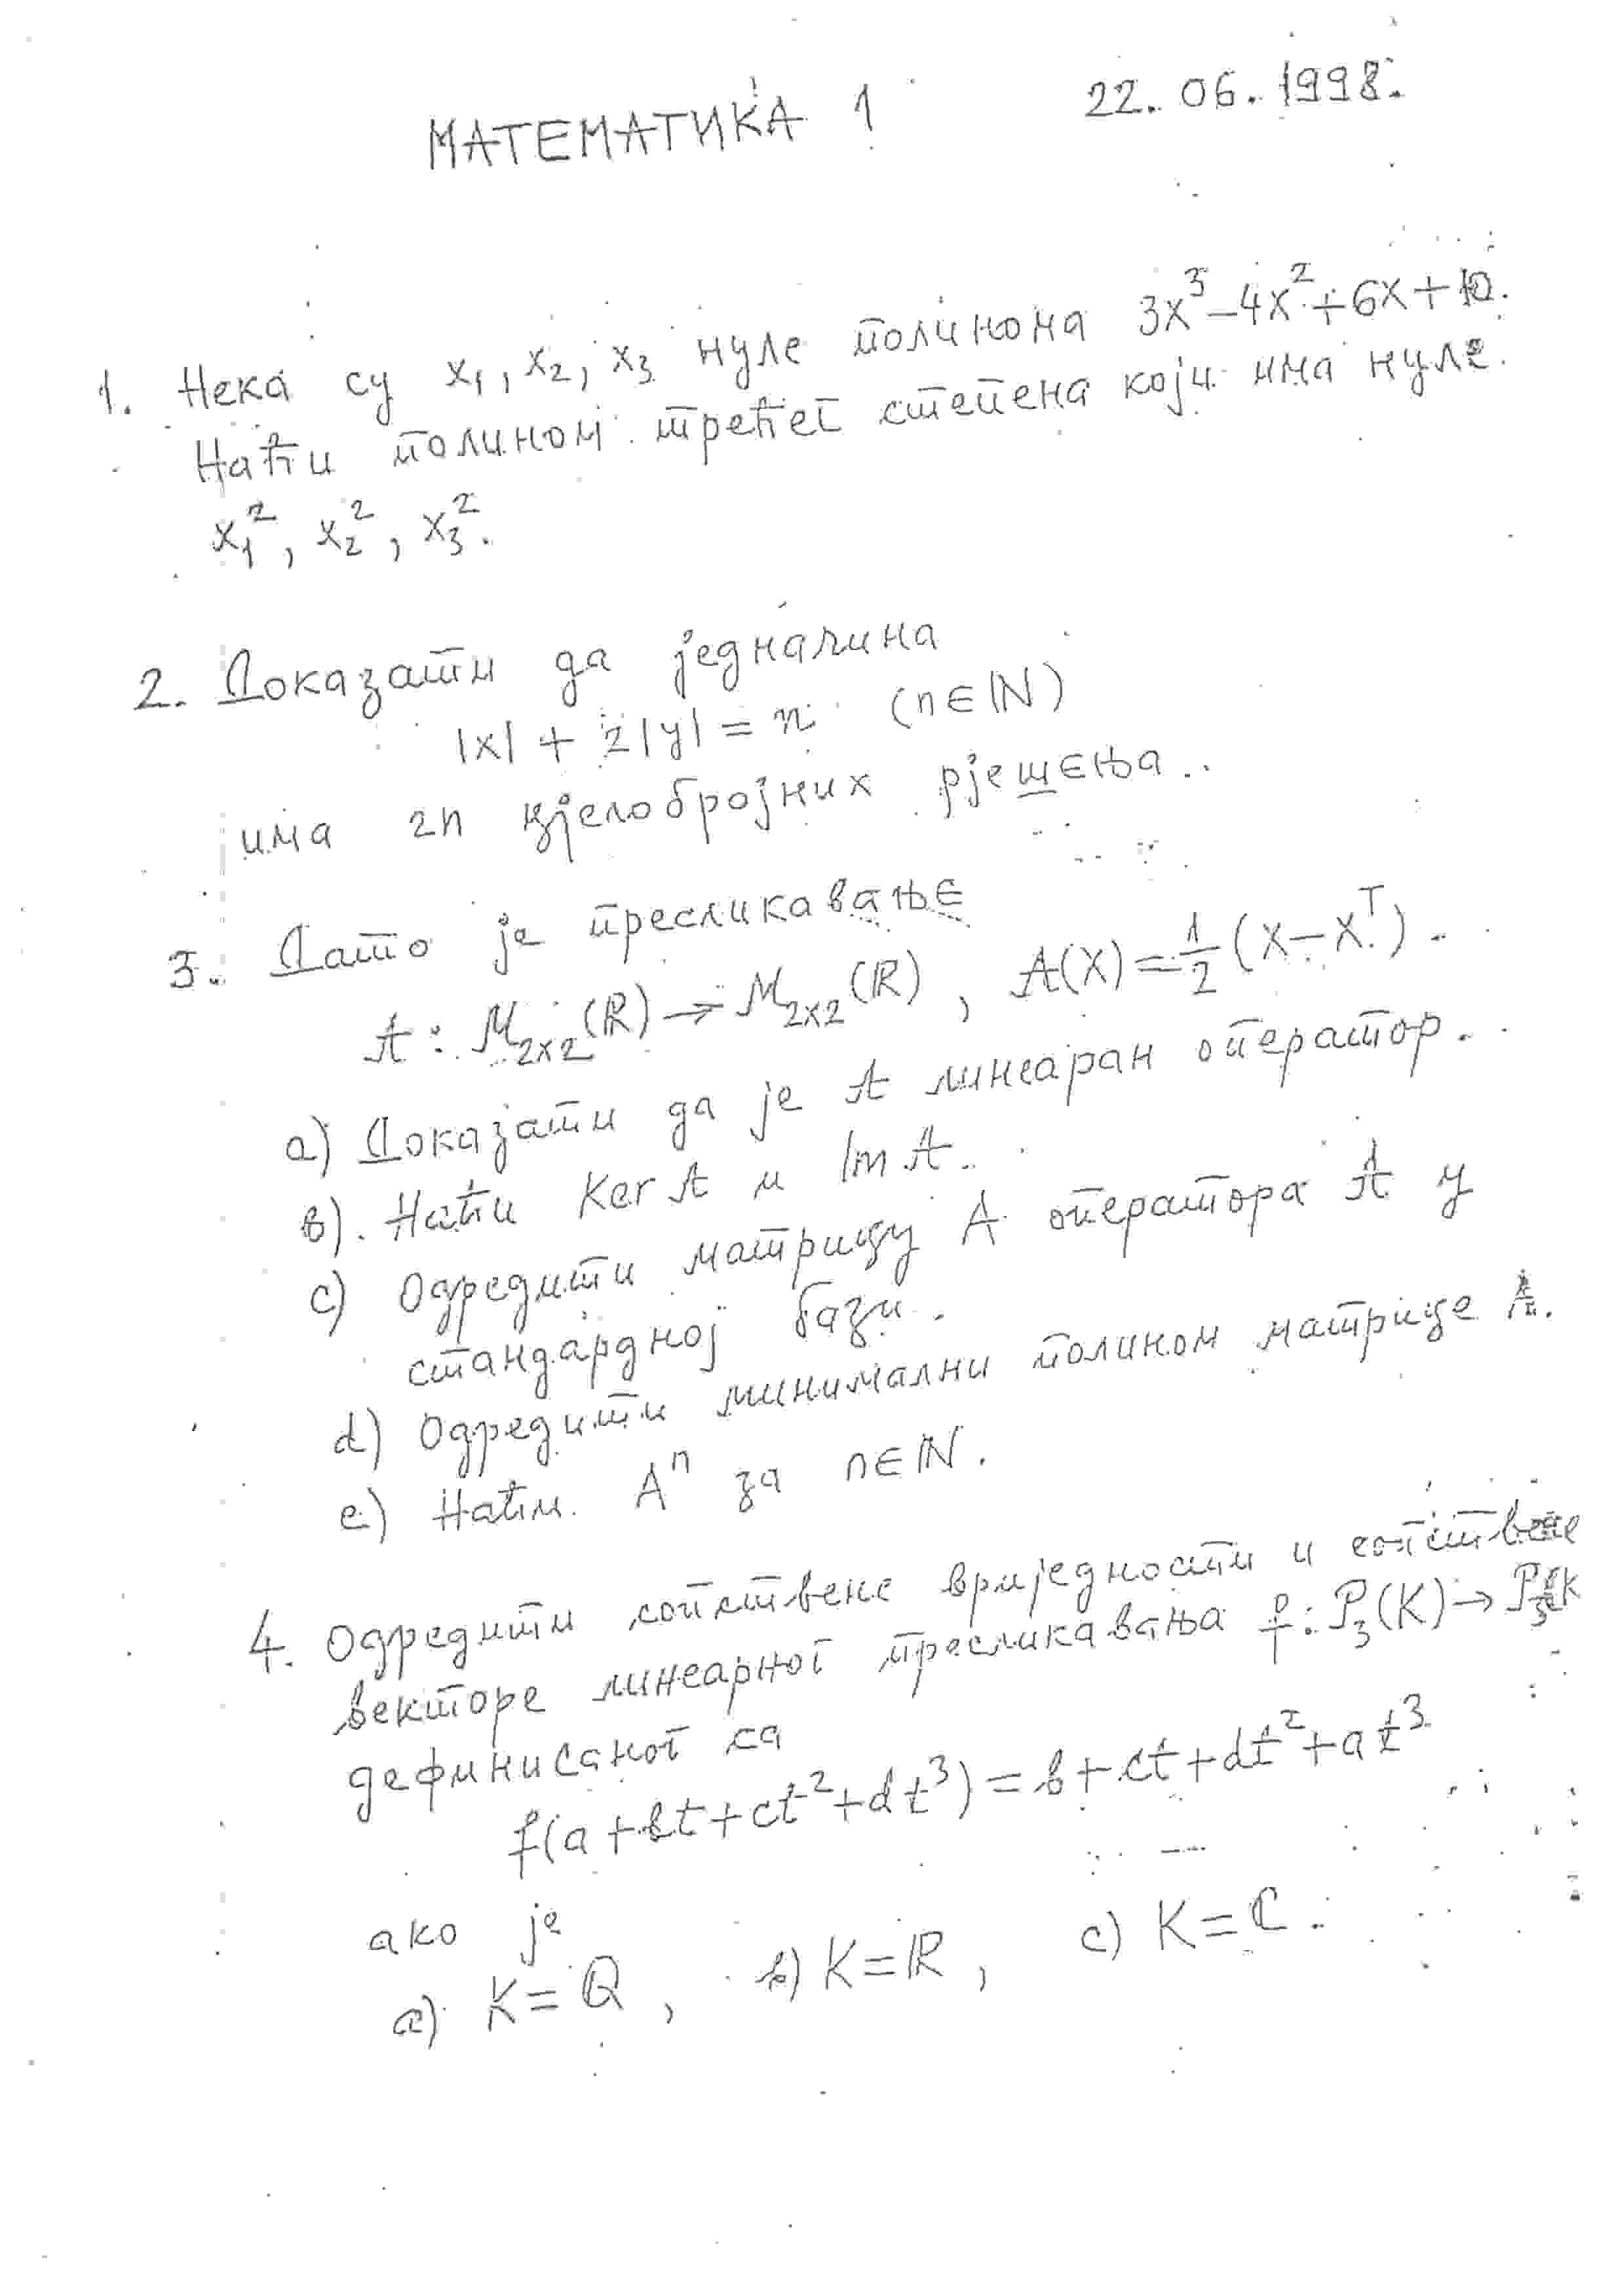 МАТЕМАТИКА 1 22.06.1998.
1. Нека су x₁, x₂, x₃ нуле полинома 3x³-4x²+6x+10.
Наћи полином трећег степена који има нуле
x₁², x₂², x₃².
2. Доказати да једначина
|x| + 2|y| = n (n∈ℕ)
има 2n цјелобројних рјешења.
3. Дато је пресликавање
A: M₂ₓ₂(ℝ) → M₂ₓ₂(ℝ), A(X) = 1/2 (X-Xᵀ).
a) Доказати да је A линеаран оператор.
b) Наћи Ker A и Im A.
c) Одредити матрицу A оператора A у
стандардној бази.
d) Одредити минимални полином матрице A.
e) Наћи Aⁿ за n∈ℕ.
4. Одредити сопствене вриједности и сопствене
векторе линеарног пресликавања f: P₃(K) → P₃(K
дефинисаног са
f(a+bt+ct²+dt³) = b+ct+dt²+at³
ако је
a) K=ℚ, b) K=ℝ, c) K=ℂ.